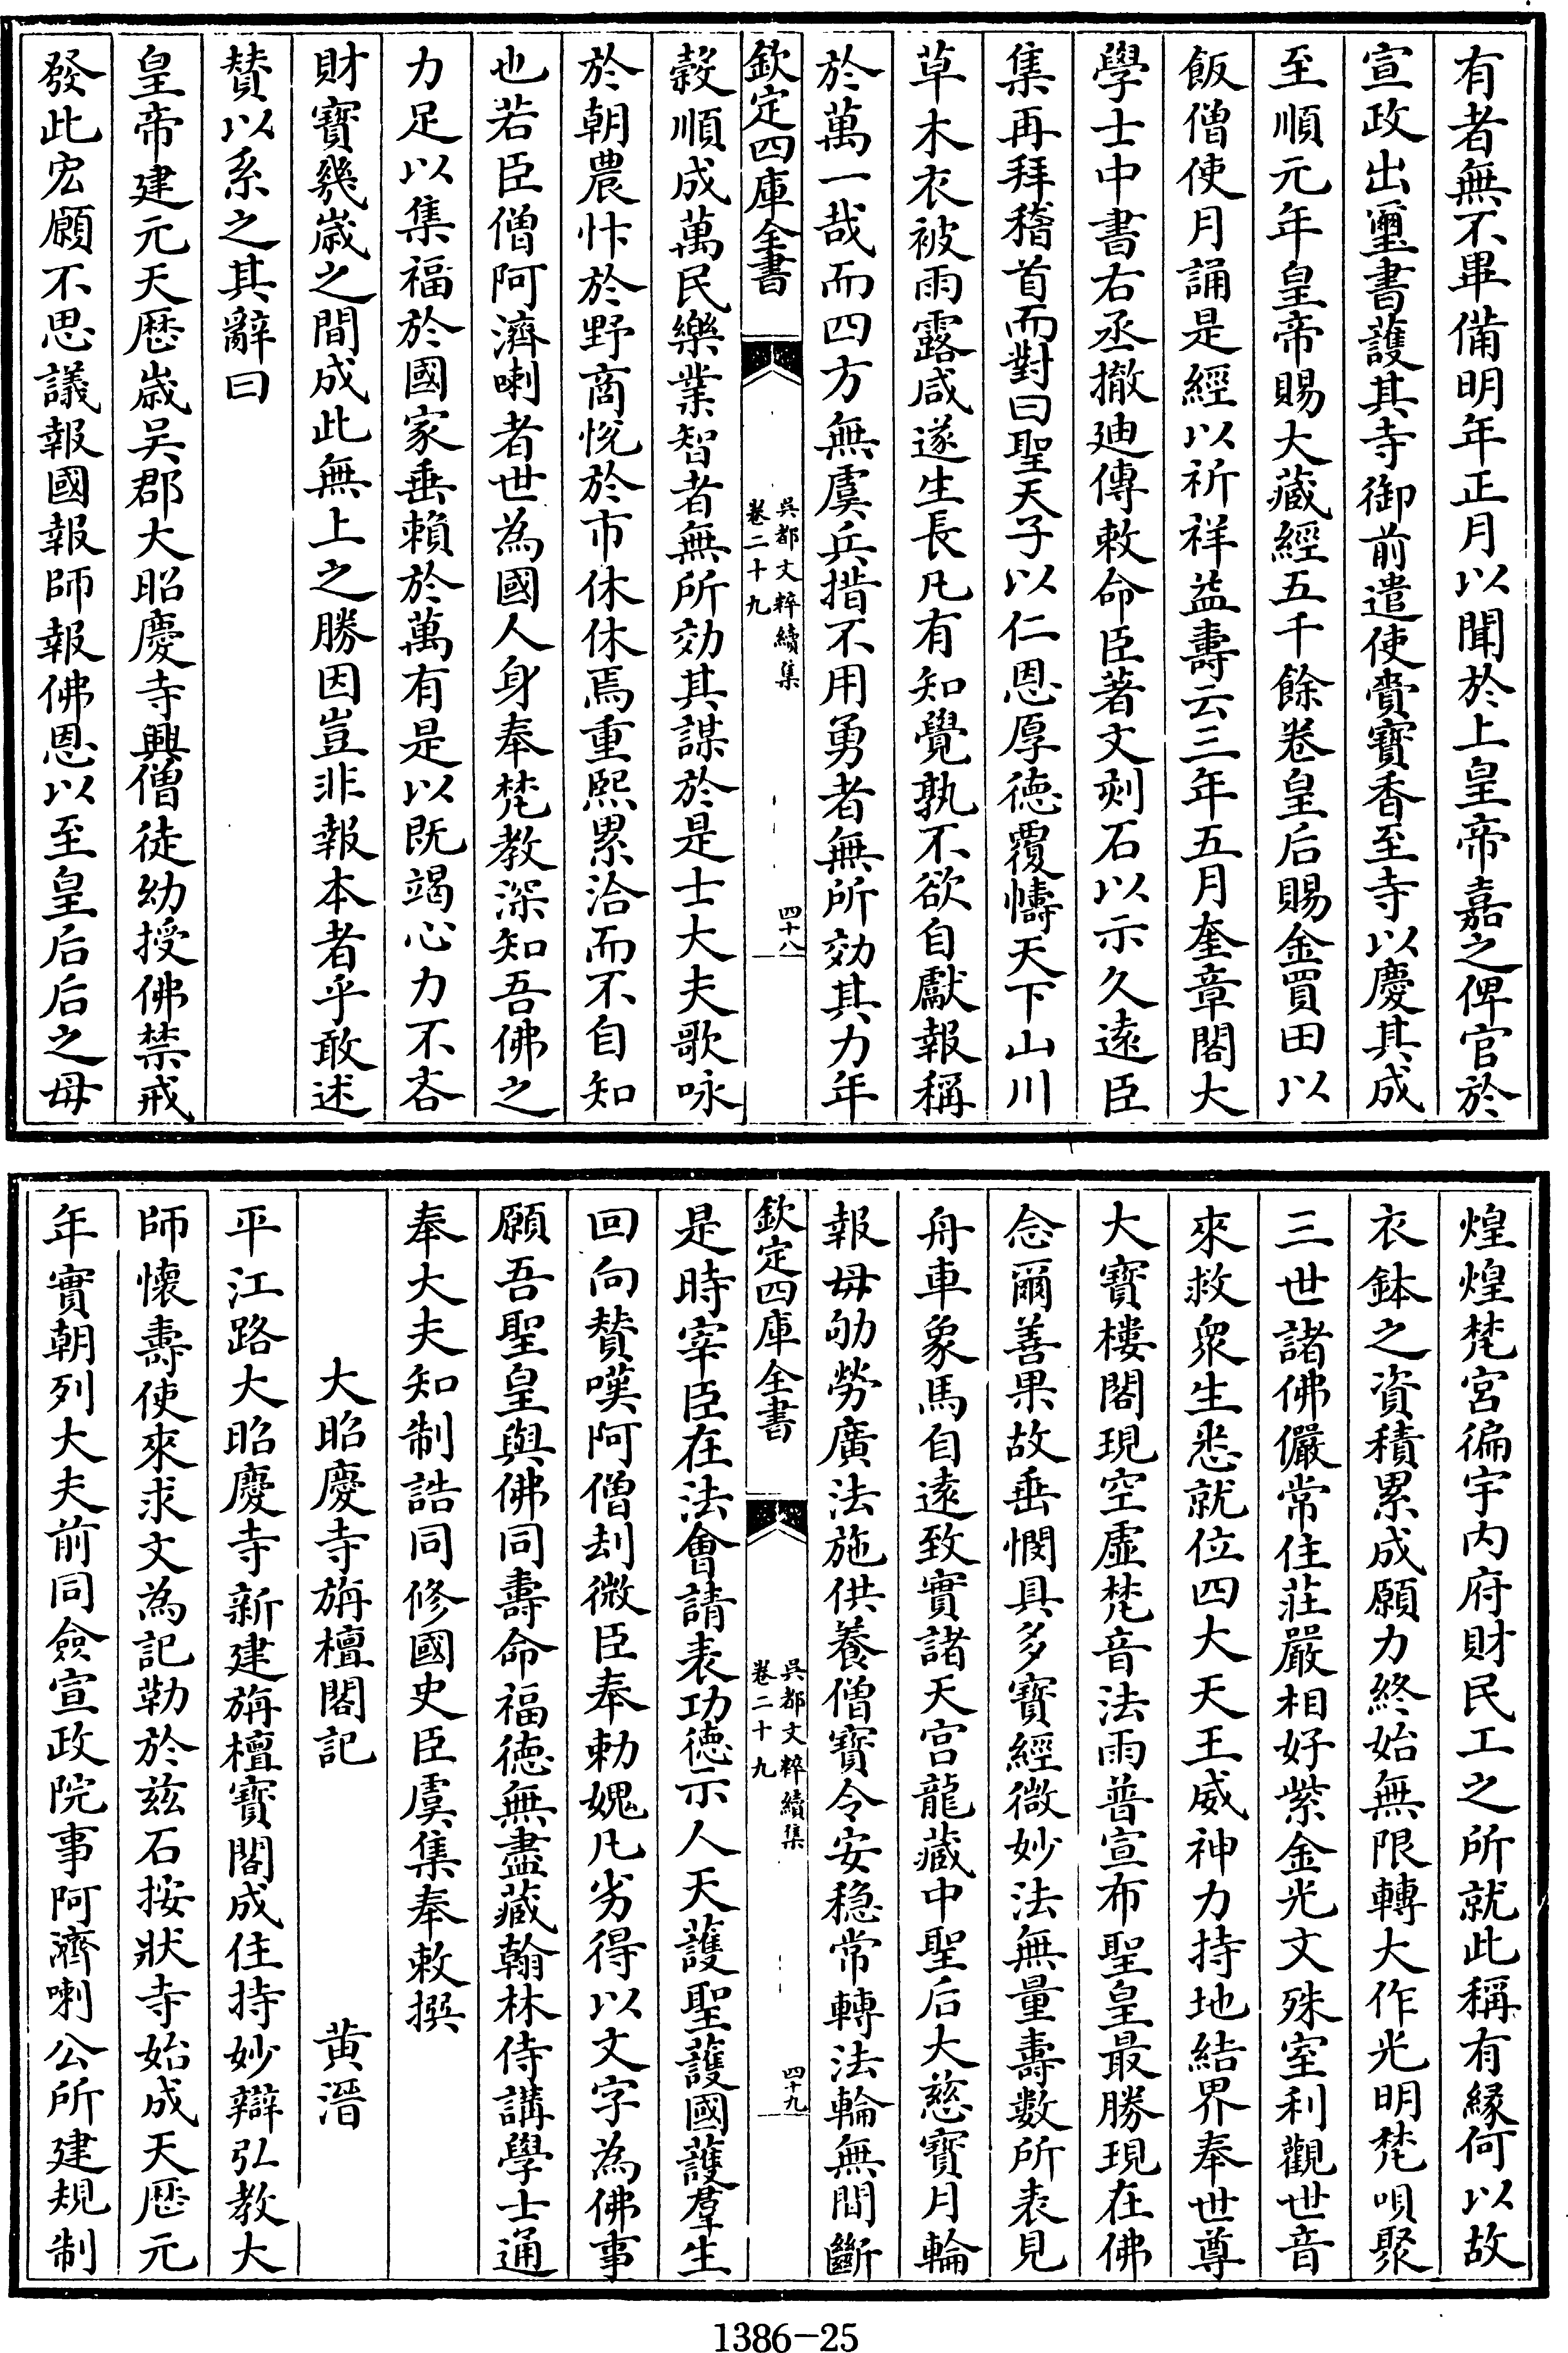 有者無不畢備明年正月以聞於上皇帝嘉之俾官於
宣政出璽書護其寺御前遣使賫寳香至寺以慶其成
至順元年皇帝賜大藏經五千餘卷皇后賜金買田以
飯僧使月誦是經以祈祥益壽云三年五月奎章閣大
學士中書右丞撤廸傳敕命臣著文刻石以示久遠臣
集再拜稽首而對曰聖天子以仁恩厚徳覆幬天下山川
草木衣被雨露咸遂生長凡有知覺孰不欲自獻報稱
於萬一哉而四方無虞兵措不用勇者無所効其力年
欽定四庫全書
吳都文粹續集
卷二十九
四十八
穀順成萬民樂業智者無所効其謀於是士大夫歌咏
於朝農忭於野商悅於市休休焉重熙累洽而不自知
也若臣僧阿濟喇者世為國人身奉梵教深知吾佛之
力足以集福於國家垂賴於萬有是以既竭心力不吝
財寳幾歳之間成此無上之勝因豈非報本者乎敢述
賛以系之其辭曰
皇帝建元天厯歳吳郡大昭慶寺興僧徒幼授佛禁戒
發此宏願不思議報國報師報佛恩以至皇后后之母
煌煌梵宮徧宇内府財民工之所就此稱有緣何以故
衣鉢之資積累成願力終始無限轉大作光明梵唄聚
三世諸佛儼常住莊嚴相好紫金光文殊室利觀世音
來救衆生悉就位四大天王威神力持地結界奉世尊
大寳樓閣現空虛梵音法雨普宣布聖皇最勝現在佛
念爾善果故垂憫具多寳經微妙法無量壽數所表見
舟車象馬自遠致實諸天宫龍藏中聖后大慈寳月輪
報母劬勞廣法施供養僧寳令安穏常轉法輪無間斷
欽定四庫全書
吳都文粹續集
卷二十九
四十九
是時宰臣在法會請表功徳示人天護聖護國護羣生
回向賛嘆阿僧刦微臣奉勅媿凡劣得以文字為佛事
願吾聖皇與佛同壽命福徳無盡藏翰林侍講學士通
奉大夫知制誥同修國史臣虞集奉敕撰
大昭慶寺旃檀閣記　　黄溍
平江路大昭慶寺新建旃檀寳閣成住持妙辯弘教大
師懷壽使來求文為記勒於兹石按狀寺始成天厯元
年實朝列大夫前同僉宣政院事阿濟喇公所建規制
1386-25